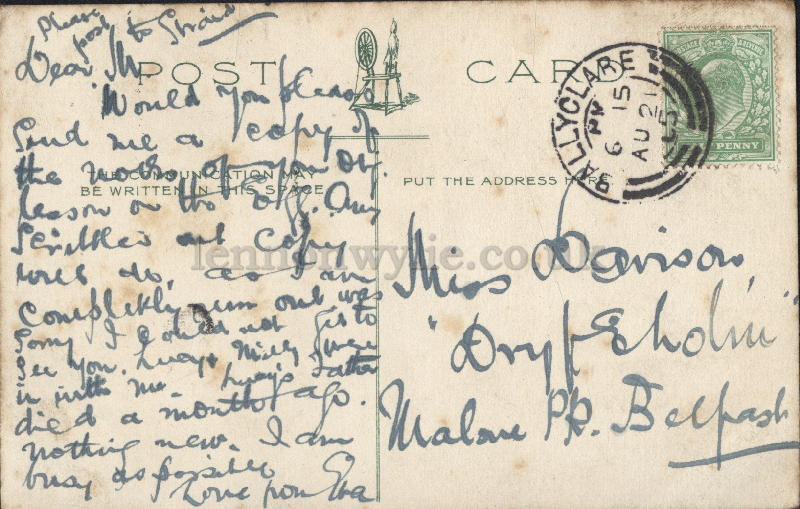 Please
post to Strand
Dear M
POST CARD
Would you please
send me a copy of
the notes of your Obj.
THE COMMUNICATION MAY
BE WRITTEN IN THIS SPACE
lesson on the Egg. Any
scribbled out copy
will do, as I am
completely run out. was
sorry I could not get to
see you. Milly were
in with me. father
died a month ago.
nothing new. I am
busy as possible
Love from Eva
PUT THE ADDRESS HERE
BALLYCLARE
6 15 PM
AU 21
PENNY
Miss Davison,
"Dryfeholm"
Malone Pk. Belfast
lennonwylie.co.uk